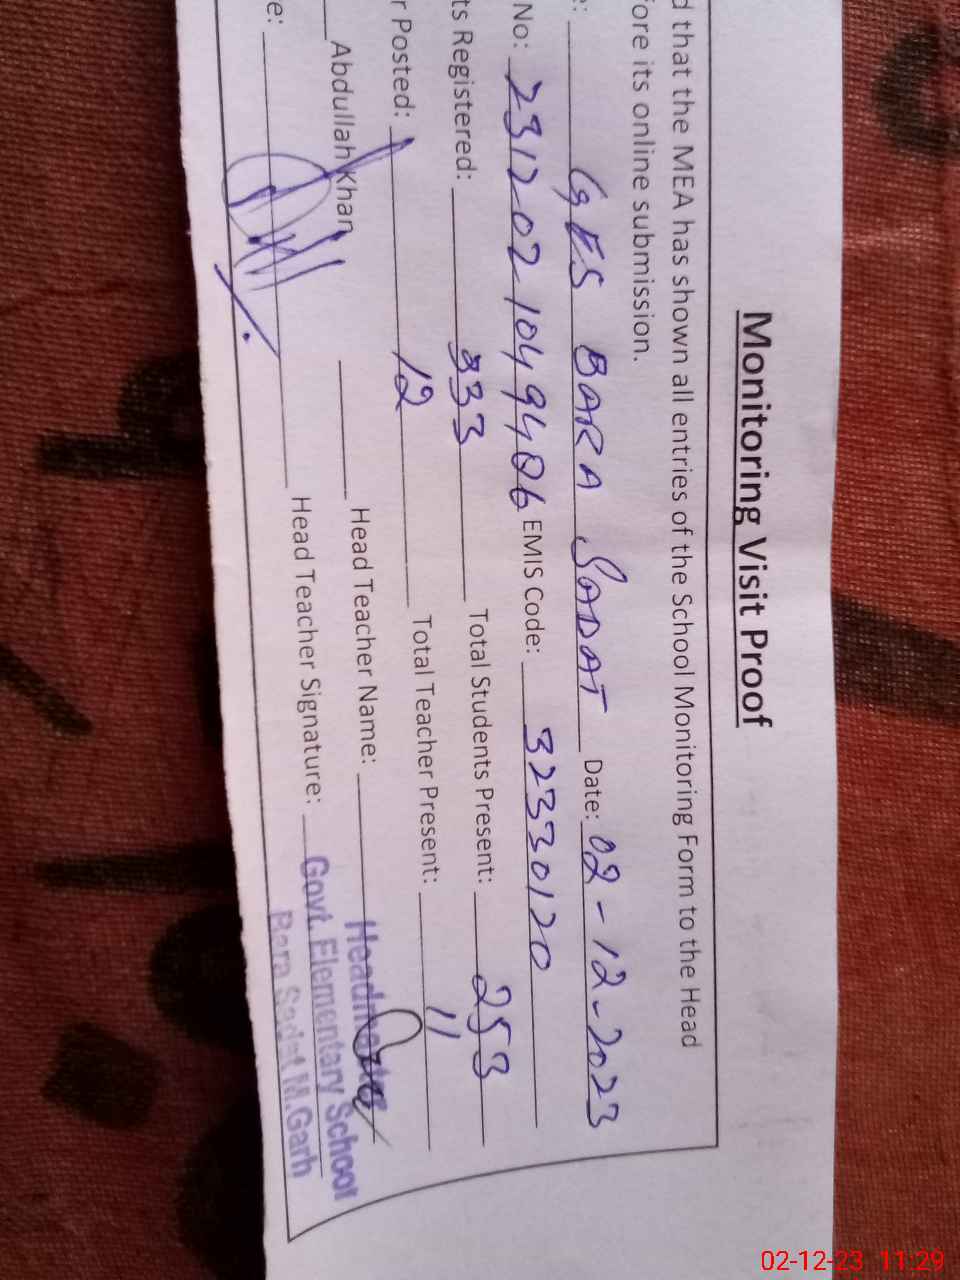 Monitoring Visit Proof
d that the MEA has shown all entries of the School Monitoring Form to the Head
fore its online submission.
e: GES BARA SADAT Date: 02-12-2023
No: 2312021049406 EMIS Code: 32330120
ts Registered: 333 Total Students Present: 253
r Posted: 12 Total Teacher Present: 11
Abdullah Khan Head Teacher Name:
e: Head Teacher Signature:
Headmaster
Govt. Elementary School
Bara Sadat M.Garh
02-12-23 11:29